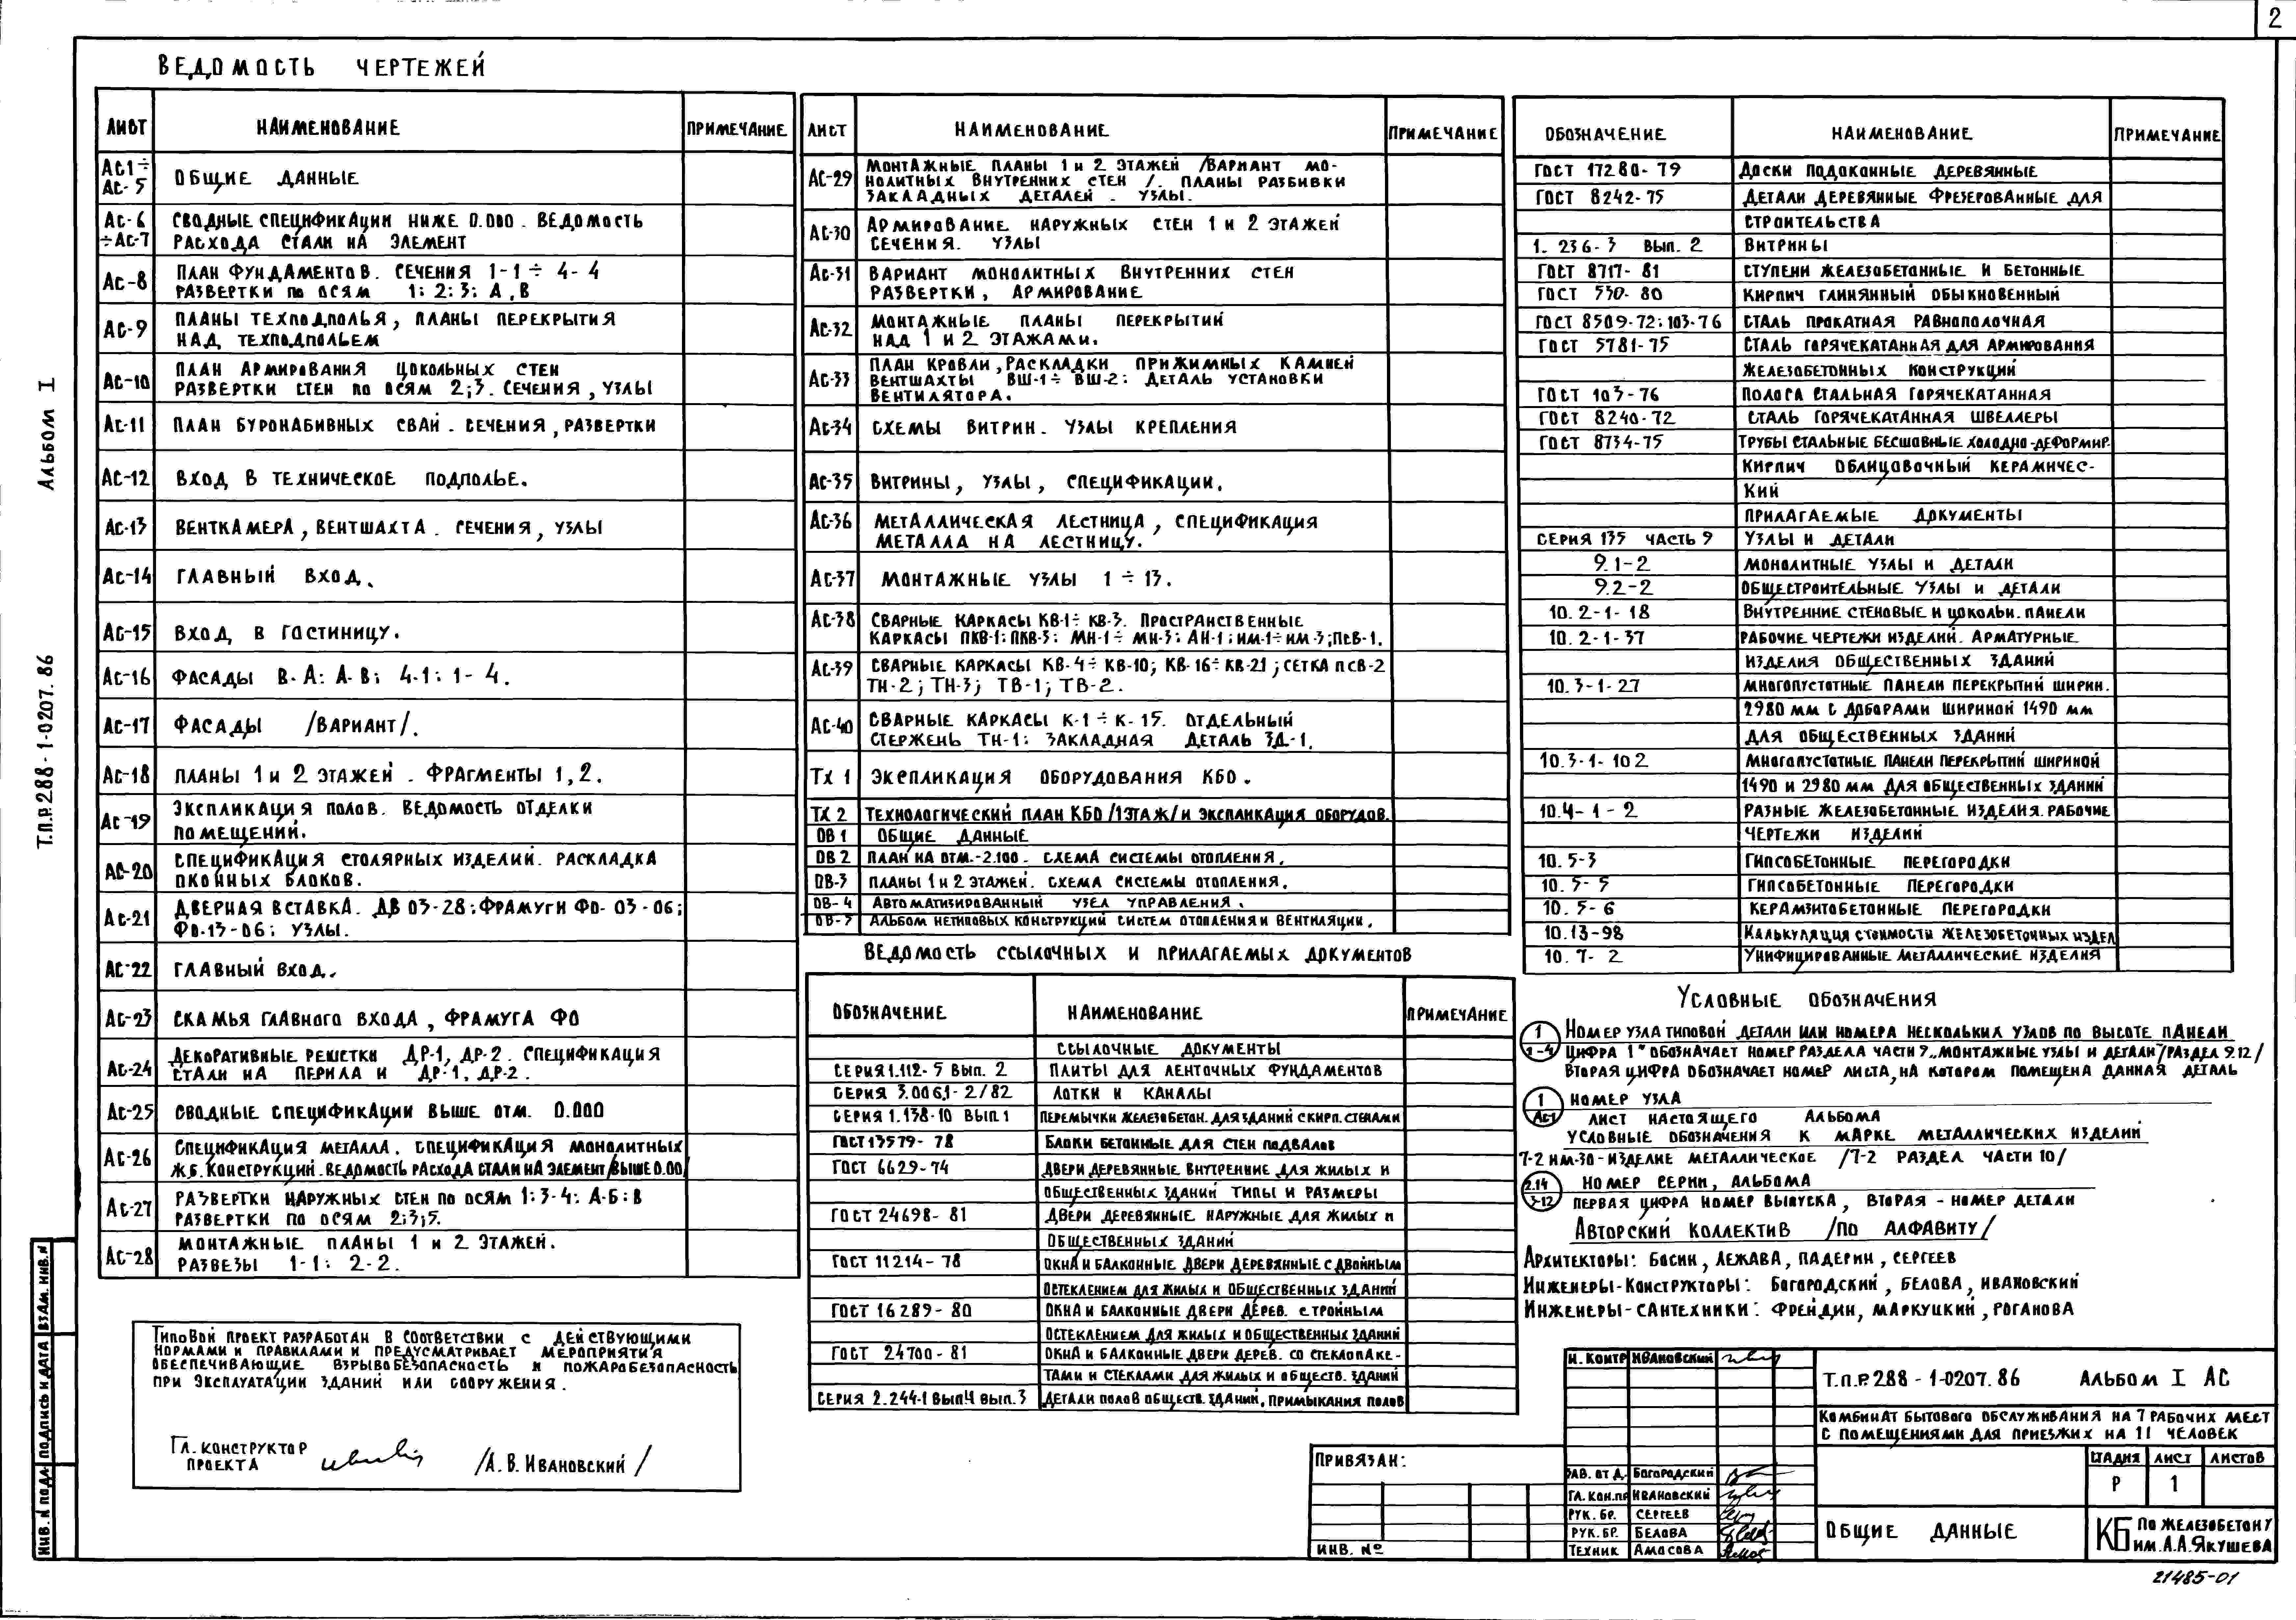 2
ВЕДОМОСТЬ ЧЕРТЕЖЕЙ
ЛИСТ НАИМЕНОВАНИЕ ПРИМЕЧАНИЕ
АС1÷ АС-5 ОБЩИЕ ДАННЫЕ
АС-6 СВОДНЫЕ СПЕЦИФИКАЦИИ НИЖЕ 0.000. ВЕДОМОСТЬ
÷АС-7 РАСХОДА СТАЛИ НА ЭЛЕМЕНТ
АС-8 ПЛАН ФУНДАМЕНТОВ. СЕЧЕНИЯ 1-1÷4-4
РАЗВЕРТКИ ПО ОСЯМ 1; 2; 3; А, В
АС-9 ПЛАНЫ ТЕХПОДПОЛЬЯ, ПЛАНЫ ПЕРЕКРЫТИЯ
НАД ТЕХПОДПОЛЬЕМ
АС-10 ПЛАН АРМИРОВАНИЯ ЦОКОЛЬНЫХ СТЕН
РАЗВЕРТКИ СТЕН ПО ОСЯМ 2;3. СЕЧЕНИЯ, УЗЛЫ
АС-11 ПЛАН БУРОНАБИВНЫХ СВАЙ. СЕЧЕНИЯ, РАЗВЕРТКИ
АС-12 ВХОД В ТЕХНИЧЕСКОЕ ПОДПОЛЬЕ.
АС-13 ВЕНТКАМЕРА, ВЕНТШАХТА. СЕЧЕНИЯ, УЗЛЫ
АС-14 ГЛАВНЫЙ ВХОД.
АС-15 ВХОД В ГОСТИНИЦУ.
АС-16 ФАСАДЫ В-А; А-В; 4-1; 1-4.
АС-17 ФАСАДЫ /ВАРИАНТ/.
АС-18 ПЛАНЫ 1 И 2 ЭТАЖЕЙ. ФРАГМЕНТЫ 1,2.
АС-19 ЭКСПЛИКАЦИЯ ПОЛОВ. ВЕДОМОСТЬ ОТДЕЛКИ
ПОМЕЩЕНИЙ.
АС-20 СПЕЦИФИКАЦИЯ СТОЛЯРНЫХ ИЗДЕЛИЙ. РАСКЛАДКА
ОКОННЫХ БЛОКОВ.
АС-21 ДВЕРНАЯ ВСТАВКА. ДВ 03-28; ФРАМУГИ ФО-03-06;
ФО-13-06; УЗЛЫ.
АС-22 ГЛАВНЫЙ ВХОД.
АС-23 СКАМЬЯ ГЛАВНОГО ВХОДА, ФРАМУГА ФО
АС-24 ДЕКОРАТИВНЫЕ РЕШЕТКИ ДР-1, ДР-2. СПЕЦИФИКАЦИЯ
СТАЛИ НА ПЕРИЛА И ДР-1, ДР-2.
АС-25 СВОДНЫЕ СПЕЦИФИКАЦИИ ВЫШЕ ОТМ. 0.000
АС-26 СПЕЦИФИКАЦИЯ МЕТАЛЛА. СПЕЦИФИКАЦИЯ МОНОЛИТНЫХ
Ж.Б. КОНСТРУКЦИЙ. ВЕДОМОСТЬ РАСХОДА СТАЛИ НА ЭЛЕМЕНТ/ВЫШЕ 0.00/
АС-27 РАЗВЕРТКИ НАРУЖНЫХ СТЕН ПО ОСЯМ 1; 3-4; А-Б; В
РАЗВЕРТКИ ПО ОСЯМ 2;3;5.
АС-28 МОНТАЖНЫЕ ПЛАНЫ 1 И 2 ЭТАЖЕЙ.
РАЗВЕЗЫ 1-1; 2-2.
ТИПОВОЙ ПРОЕКТ РАЗРАБОТАН В СООТВЕТСТВИИ С ДЕЙСТВУЮЩИМИ
НОРМАМИ И ПРАВИЛАМИ И ПРЕДУСМАТРИВАЕТ МЕРОПРИЯТИЯ
ОБЕСПЕЧИВАЮЩИЕ ВЗРЫВОБЕЗОПАСНОСТЬ И ПОЖАРОБЕЗОПАСНОСТЬ
ПРИ ЭКСПЛУАТАЦИИ ЗДАНИЙ ИЛИ СООРУЖЕНИЯ.
ГЛ. КОНСТРУКТОР
ПРОЕКТА /А.В. ИВАНОВСКИЙ/
ЛИСТ НАИМЕНОВАНИЕ ПРИМЕЧАНИЕ
АС-29 МОНТАЖНЫЕ ПЛАНЫ 1 И 2 ЭТАЖЕЙ /ВАРИАНТ МО-
НОЛИТНЫХ ВНУТРЕННИХ СТЕН/. ПЛАНЫ РАЗБИВКИ
ЗАКЛАДНЫХ ДЕТАЛЕЙ. УЗЛЫ.
АС-30 АРМИРОВАНИЕ НАРУЖНЫХ СТЕН 1 И 2 ЭТАЖЕЙ
СЕЧЕНИЯ. УЗЛЫ
АС-31 ВАРИАНТ МОНОЛИТНЫХ ВНУТРЕННИХ СТЕН
РАЗВЕРТКИ, АРМИРОВАНИЕ
АС-32 МОНТАЖНЫЕ ПЛАНЫ ПЕРЕКРЫТИЙ
НАД 1 И 2 ЭТАЖАМИ.
АС-33 ПЛАН КРОВЛИ, РАСКЛАДКИ ПРИЖИМНЫХ КАМНЕЙ
ВЕНТШАХТЫ ВШ-1÷ВШ-2; ДЕТАЛЬ УСТАНОВКИ
ВЕНТИЛЯТОРА.
АС-34 СХЕМЫ ВИТРИН. УЗЛЫ КРЕПЛЕНИЯ
АС-35 ВИТРИНЫ, УЗЛЫ, СПЕЦИФИКАЦИИ.
АС-36 МЕТАЛЛИЧЕСКАЯ ЛЕСТНИЦА, СПЕЦИФИКАЦИЯ
МЕТАЛЛА НА ЛЕСТНИЦУ.
АС-37 МОНТАЖНЫЕ УЗЛЫ 1÷13.
АС-38 СВАРНЫЕ КАРКАСЫ КВ-1÷КВ-3. ПРОСТРАНСТВЕННЫЕ
КАРКАСЫ ПКВ-1; ПКВ-3; МН-1÷МН-3; АН-1; ИМ-1÷ИМ-3; ПСВ-1.
АС-39 СВАРНЫЕ КАРКАСЫ КВ-4÷КВ-10; КВ-16÷КВ-21; СЕТКА ПСВ-2
ТН-2; ТН-3; ТВ-1; ТВ-2.
АС-40 СВАРНЫЕ КАРКАСЫ К-1÷К-15. ОТДЕЛЬНЫЙ
СТЕРЖЕНЬ ТН-1; ЗАКЛАДНАЯ ДЕТАЛЬ ЗД-1.
ТХ 1 ЭКСПЛИКАЦИЯ ОБОРУДОВАНИЯ КБО.
ТХ 2 ТЕХНОЛОГИЧЕСКИЙ ПЛАН КБО /1 ЭТАЖ/ И ЭКСПЛИКАЦИЯ ОБОРУДОВ.
ОВ 1 ОБЩИЕ ДАННЫЕ
ОВ 2 ПЛАН НА ОТМ.-2.100. СХЕМА СИСТЕМЫ ОТОПЛЕНИЯ.
ОВ-3 ПЛАНЫ 1 И 2 ЭТАЖЕЙ. СХЕМА СИСТЕМЫ ОТОПЛЕНИЯ.
ОВ-4 АВТОМАТИЗИРОВАННЫЙ УЗЕЛ УПРАВЛЕНИЯ.
ОВ-5 АЛЬБОМ НЕТИПОВЫХ КОНСТРУКЦИЙ СИСТЕМ ОТОПЛЕНИЯ И ВЕНТИЛЯЦИИ.
ВЕДОМОСТЬ ССЫЛОЧНЫХ И ПРИЛАГАЕМЫХ ДОКУМЕНТОВ
ОБОЗНАЧЕНИЕ НАИМЕНОВАНИЕ ПРИМЕЧАНИЕ
ССЫЛОЧНЫЕ ДОКУМЕНТЫ
СЕРИЯ 1.112-5 ВЫП. 2 ПЛИТЫ ДЛЯ ЛЕНТОЧНЫХ ФУНДАМЕНТОВ
СЕРИЯ 3.006.1-2/82 ЛОТКИ И КАНАЛЫ
СЕРИЯ 1.138-10 ВЫП.1 ПЕРЕМЫЧКИ ЖЕЛЕЗОБЕТОН. ДЛЯ ЗДАНИЙ С КИРП. СТЕНАМИ
ГОСТ 13579-78 БЛОКИ БЕТОННЫЕ ДЛЯ СТЕН ПОДВАЛОВ
ГОСТ 6629-74 ДВЕРИ ДЕРЕВЯННЫЕ ВНУТРЕННИЕ ДЛЯ ЖИЛЫХ И
ОБЩЕСТВЕННЫХ ЗДАНИЙ ТИПЫ И РАЗМЕРЫ
ГОСТ 24698-81 ДВЕРИ ДЕРЕВЯННЫЕ НАРУЖНЫЕ ДЛЯ ЖИЛЫХ И
ОБЩЕСТВЕННЫХ ЗДАНИЙ
ГОСТ 11214-78 ОКНА И БАЛКОННЫЕ ДВЕРИ ДЕРЕВЯННЫЕ С ДВОЙНЫМ
ОСТЕКЛЕНИЕМ ДЛЯ ЖИЛЫХ И ОБЩЕСТВЕННЫХ ЗДАНИЙ
ГОСТ 16289-80 ОКНА И БАЛКОННЫЕ ДВЕРИ ДЕРЕВ. С ТРОЙНЫМ
ОСТЕКЛЕНИЕМ ДЛЯ ЖИЛЫХ И ОБЩЕСТВЕННЫХ ЗДАНИЙ
ГОСТ 24700-81 ОКНА И БАЛКОННЫЕ ДВЕРИ ДЕРЕВ. СО СТЕКЛОПАКЕ-
ТАМИ И СТЕКЛАМИ ДЛЯ ЖИЛЫХ И ОБЩЕСТВ. ЗДАНИЙ
СЕРИЯ 2.244-1 ВЫП.4 ВЫП.3 ДЕТАЛИ ПОЛОВ ОБЩЕСТВ. ЗДАНИЙ, ПРИМЫКАНИЯ ПОЛОВ
ОБОЗНАЧЕНИЕ НАИМЕНОВАНИЕ ПРИМЕЧАНИЕ
ГОСТ 17280-79 ДОСКИ ПОДОКОННЫЕ ДЕРЕВЯННЫЕ
ГОСТ 8242-75 ДЕТАЛИ ДЕРЕВЯННЫЕ ФРЕЗЕРОВАННЫЕ ДЛЯ
СТРОИТЕЛЬСТВА
1.236-3 ВЫП. 2 ВИТРИНЫ
ГОСТ 8717-81 СТУПЕНИ ЖЕЛЕЗОБЕТОННЫЕ И БЕТОННЫЕ
ГОСТ 530-80 КИРПИЧ ГЛИНЯННЫЙ ОБЫКНОВЕННЫЙ
ГОСТ 8509-72; 103-76 СТАЛЬ ПРОКАТНАЯ РАВНОПОЛОЧНАЯ
ГОСТ 5781-75 СТАЛЬ ГОРЯЧЕКАТАННАЯ ДЛЯ АРМИРОВАНИЯ
ЖЕЛЕЗОБЕТОННЫХ КОНСТРУКЦИЙ
ГОСТ 103-76 ПОЛОСА СТАЛЬНАЯ ГОРЯЧЕКАТАННАЯ
ГОСТ 8240-72 СТАЛЬ ГОРЯЧЕКАТАННАЯ ШВЕЛЛЕРЫ
ГОСТ 8734-75 ТРУБЫ СТАЛЬНЫЕ БЕСШОВНЫЕ ХОЛОДНО-ДЕФОРМИР.
КИРПИЧ ОБЛИЦОВОЧНЫЙ КЕРАМИЧЕС-
КИЙ
ПРИЛАГАЕМЫЕ ДОКУМЕНТЫ
СЕРИЯ 135 ЧАСТЬ 9 УЗЛЫ И ДЕТАЛИ
9.1-2 МОНОЛИТНЫЕ УЗЛЫ И ДЕТАЛИ
9.2-2 ОБЩЕСТРОИТЕЛЬНЫЕ УЗЛЫ И ДЕТАЛИ
10.2-1-18 ВНУТРЕННИЕ СТЕНОВЫЕ И ЦОКОЛЬН. ПАНЕЛИ
10.2-1-37 РАБОЧИЕ ЧЕРТЕЖИ ИЗДЕЛИЙ. АРМАТУРНЫЕ
ИЗДЕЛИЯ ОБЩЕСТВЕННЫХ ЗДАНИЙ
10.3-1-27 МНОГОПУСТОТНЫЕ ПАНЕЛИ ПЕРЕКРЫТИЙ ШИРИН.
2980 ММ С ДОБОРАМИ ШИРИНОЙ 1490 ММ
ДЛЯ ОБЩЕСТВЕННЫХ ЗДАНИЙ
10.3-1-102 МНОГОПУСТОТНЫЕ ПАНЕЛИ ПЕРЕКРЫТИЙ ШИРИНОЙ
1490 И 2980 ММ ДЛЯ ОБЩЕСТВЕННЫХ ЗДАНИЙ
10.4-1-2 РАЗНЫЕ ЖЕЛЕЗОБЕТОННЫЕ ИЗДЕЛИЯ. РАБОЧИЕ
ЧЕРТЕЖИ ИЗДЕЛИЙ
10.5-3 ГИПСОБЕТОННЫЕ ПЕРЕГОРОДКИ
10.5-5 ГИПСОБЕТОННЫЕ ПЕРЕГОРОДКИ
10.5-6 КЕРАМЗИТОБЕТОННЫЕ ПЕРЕГОРОДКИ
10.13-98 КАЛЬКУЛЯЦИЯ СТОИМОСТИ ЖЕЛЕЗОБЕТОННЫХ ИЗДЕЛ
10.7-2 УНИФИЦИРОВАННЫЕ МЕТАЛЛИЧЕСКИЕ ИЗДЕЛИЯ
УСЛОВНЫЕ ОБОЗНАЧЕНИЯ
1 НОМЕР УЗЛА ТИПОВОЙ ДЕТАЛИ ИЛИ НОМЕРА НЕСКОЛЬКИХ УЗЛОВ ПО ВЫСОТЕ ПАНЕЛИ
1-4 ЦИФРА 1" ОБОЗНАЧАЕТ НОМЕР РАЗДЕЛА ЧАСТИ 9 „МОНТАЖНЫЕ УЗЛЫ И ДЕТАЛИ"/РАЗДЕЛ 9.12/
ВТОРАЯ ЦИФРА ОБОЗНАЧАЕТ НОМЕР ЛИСТА, НА КОТОРОМ ПОМЕЩЕНА ДАННАЯ ДЕТАЛЬ
1 НОМЕР УЗЛА
АС1 ЛИСТ НАСТОЯЩЕГО АЛЬБОМА
УСЛОВНЫЕ ОБОЗНАЧЕНИЯ К МАРКЕ МЕТАЛЛИЧЕСКИХ ИЗДЕЛИЙ
7-2 ИМ-30-ИЗДЕЛИЕ МЕТАЛЛИЧЕСКОЕ /7-2 РАЗДЕЛ ЧАСТИ 10/
2.14 НОМЕР СЕРИИ, АЛЬБОМА
3-12 ПЕРВАЯ ЦИФРА НОМЕР ВЫПУСКА, ВТОРАЯ - НОМЕР ДЕТАЛИ
АВТОРСКИЙ КОЛЛЕКТИВ /ПО АЛФАВИТУ/
АРХИТЕКТОРЫ: БОСИН, ЛЕЖАВА, ПАДЕРИН, СЕРГЕЕВ
ИНЖЕНЕРЫ-КОНСТРУКТОРЫ: БОГОРОДСКИЙ, БЕЛОВА, ИВАНОВСКИЙ
ИНЖЕНЕРЫ-САНТЕХНИКИ: ФРЕЙДИН, МАРКУЦКИЙ, РОГАНОВА
ПРИВЯЗАН:
ИНВ. №
Н. КОНТР ИВАНОВСКИЙ
ЗАВ. ОТД. БОГОРОДСКИЙ
ГЛ. КОН.ПР ИВАНОВСКИЙ
РУК. БР. СЕРГЕЕВ
РУК. БР. БЕЛОВА
ТЕХНИК АМОСОВА
Т.П.Р. 288-1-0207.86 АЛЬБОМ I АС
КОМБИНАТ БЫТОВОГО ОБСЛУЖИВАНИЯ НА 7 РАБОЧИХ МЕСТ
С ПОМЕЩЕНИЯМИ ДЛЯ ПРИЕЗЖИХ НА 11 ЧЕЛОВЕК
СТАДИЯ ЛИСТ ЛИСТОВ
Р 1
ОБЩИЕ ДАННЫЕ
КБ ПО ЖЕЛЕЗОБЕТОНУ
ИМ. А.А. ЯКУШЕВА
21485-01
АЛЬБОМ I
Т.П.Р. 288-1-0207.86
ИНВ. № ПОДЛ ПОДПИСЬ И ДАТА ВЗАМ. ИНВ. №